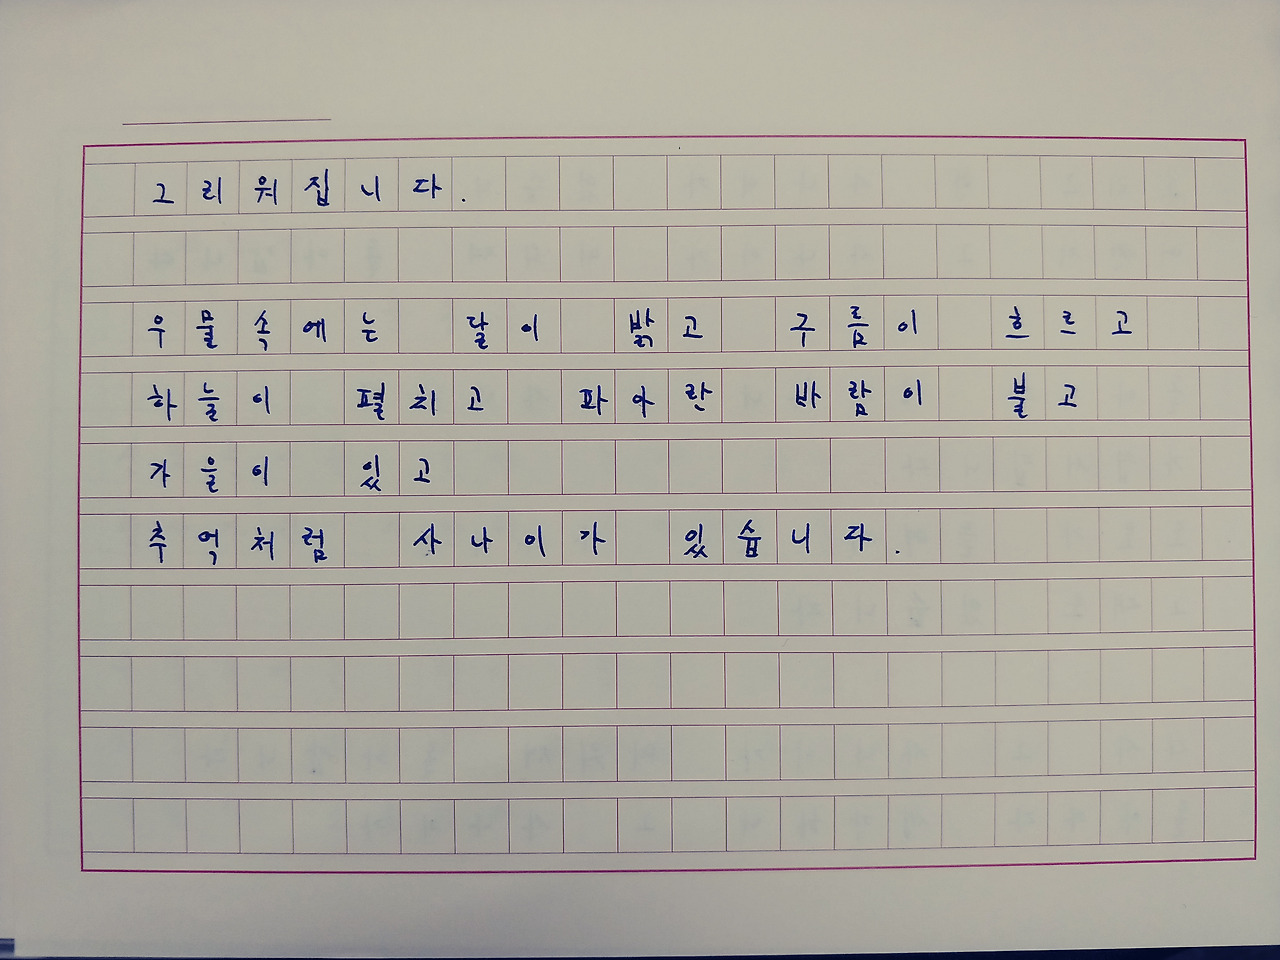 그리워집니다.
우물속에는 달이 밝고 구름이 흐르고
하늘이 펼치고 파아란 바람이 불고
가을이 있고
추억처럼 사나이가 있습니다.